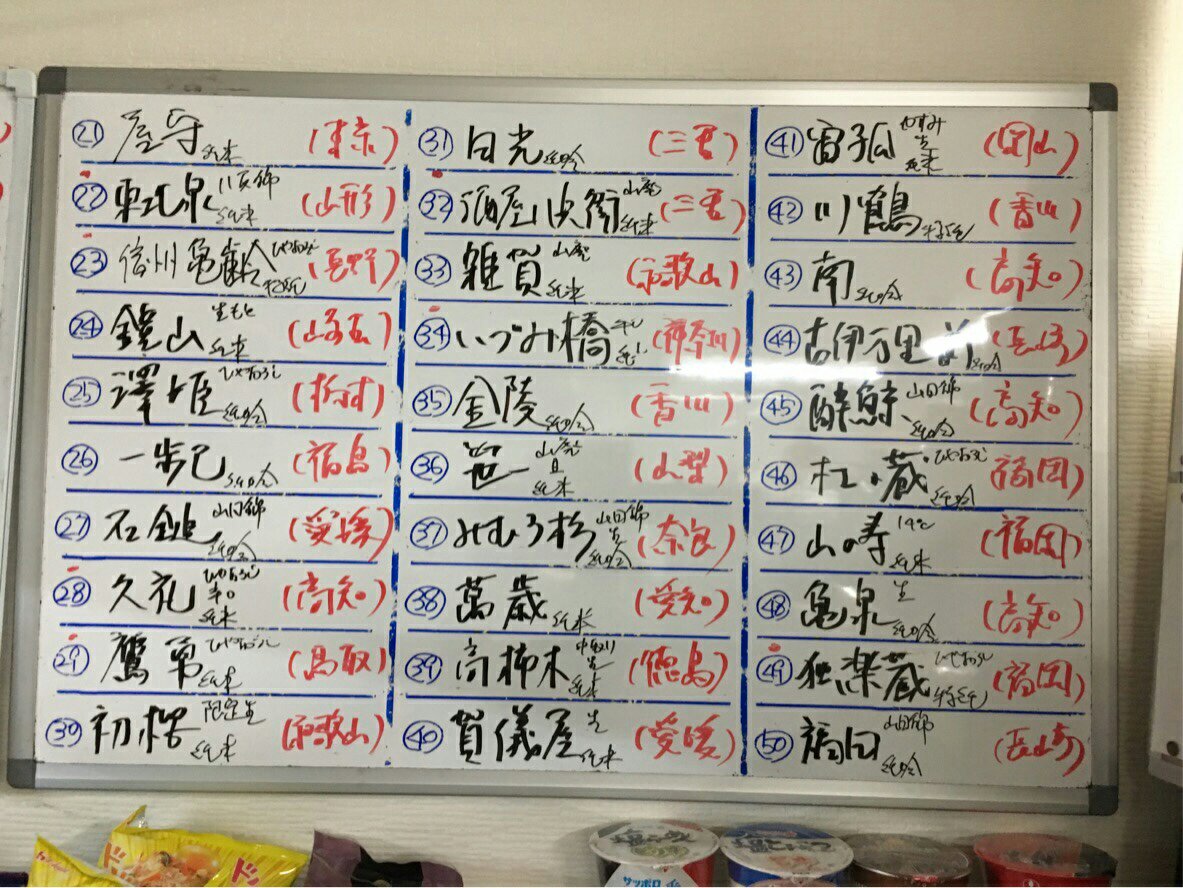 ㉑ 屋守 純米 (東京)
㉒ 東北泉 純米 (山形)
㉓ 信州亀齢 ひやおろし (長野)
㉔ 鏡山 生もと 純米 (埼玉)
㉕ 澤姫 ひやおろし 純吟 (栃木)
㉖ 一歩己 純吟 (福島)
㉗ 石鎚 山田錦 純吟 (愛媛)
㉘ 久礼 ひやおろし 純米 (高知)
㉙ 鷹勇 純米 (鳥取)
㉚ 初桜 限定生 純米 (和歌山)
㉛ 日光 純吟 (三重)
㉜ 酒屋 山廃 純米 (三重)
㉝ 雑賀 山廃 純米 (和歌山)
㉞ いづみ橋 (神奈川)
㉟ 金陵 純吟 (香川)
㊱ 笹一 山廃 純米 (山梨)
㊲ みむろ杉 山田錦 純吟 (奈良)
㊳ 萬歳 純米 (愛知)
㊴ 高柿木 生 純米 (徳島)
㊵ 賀儀屋 生 純米 (愛媛)
㊶ 宙狐 やすみ 生 純米 (岡山)
㊷ 川鶴 特純 (香川)
㊸ 南 純吟 (高知)
㊹ 古伊万里 前 純吟
㊺ 酔鯨 山田錦 純吟 (高知)
㊻ 杜の蔵 ひやおろし 純吟 (福岡)
㊼ 山の寿 純米 (福岡)
㊽ 亀泉 生 純吟 (高知)
㊾ 独楽蔵 ひやおろし 特純 (福岡)
㊿ 福田 山田錦 純吟 (長崎)
サッポロ